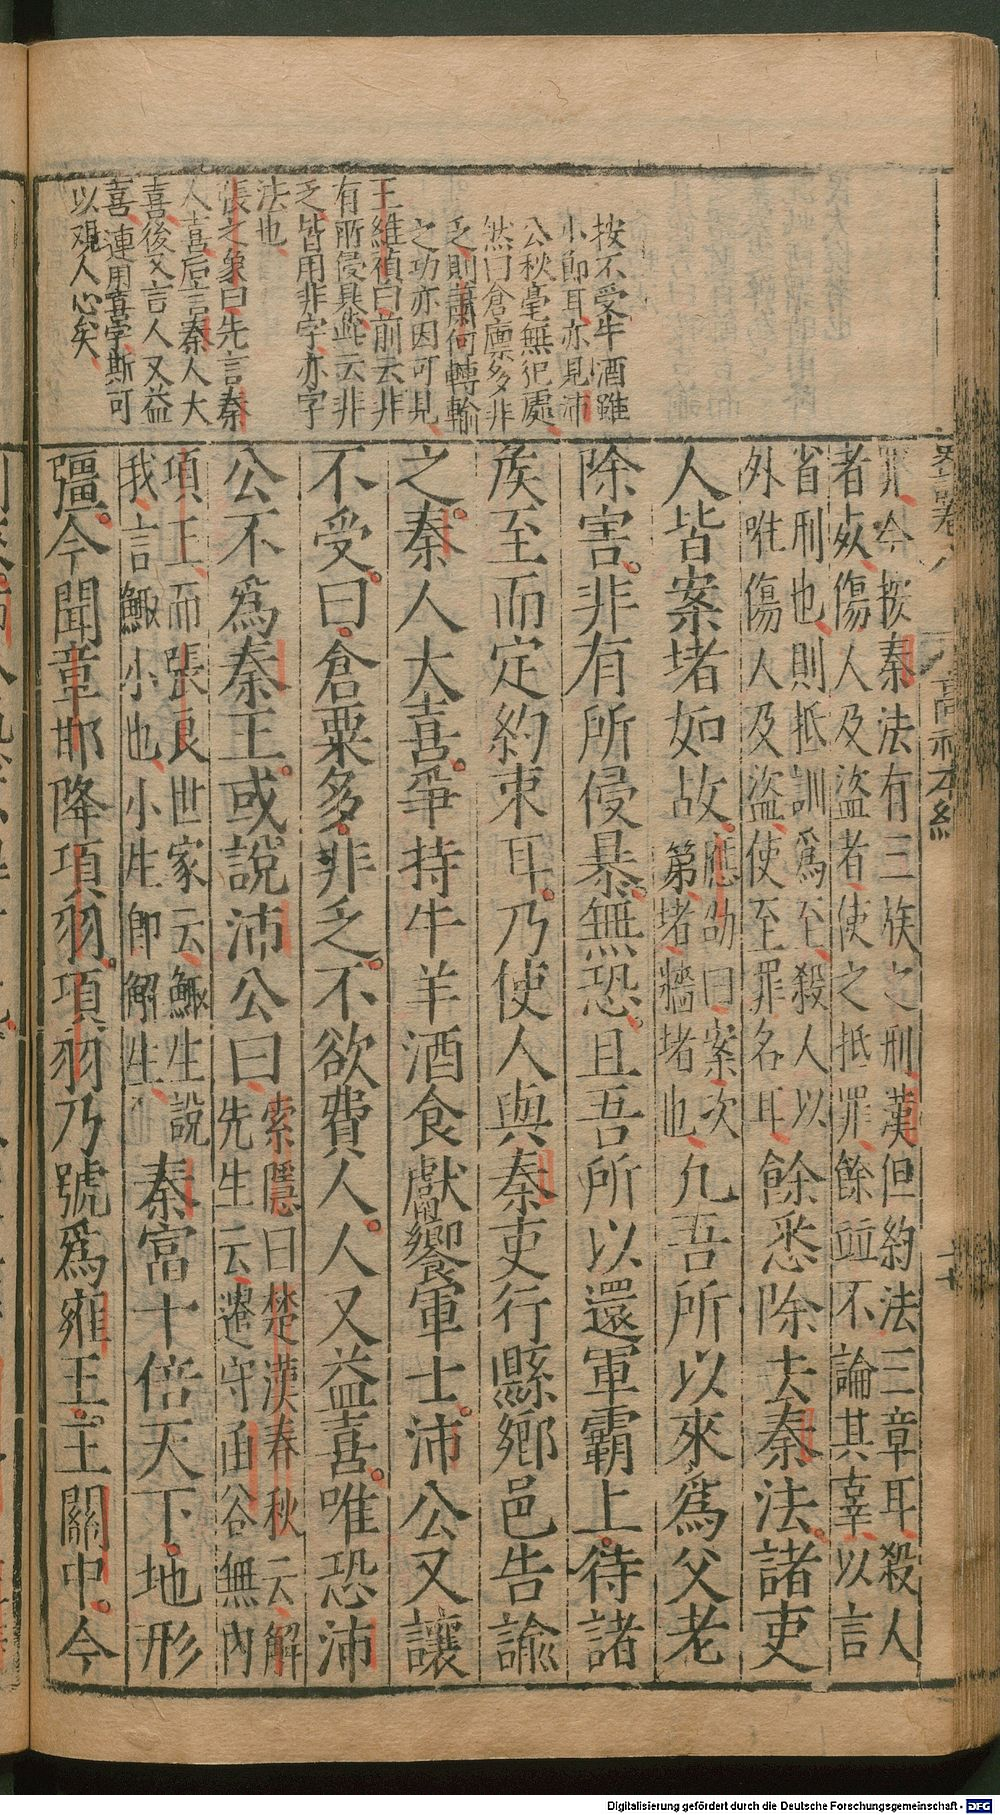 按不受牛酒雖
小節耳亦見沛
公秋毫無犯處
然曰倉廩多非
乏則蕭何轉輸
之功亦因可見
王維禎曰前云非
有所侵暴此云非
乏皆用非字亦字
法也
張之象曰先言秦
人喜后言秦人大
喜後又言人又益
喜連用喜字斯可
以觀人心矣
史記卷八 高祖本紀 十七
罪今按秦法有三族之刑漢但約法三章耳殺人
者死傷人及盜者使之抵罪餘並不論其辜以言
省刑也則抵訓爲至殺人以
外唯傷人及盜使至罪名耳餘悉除去秦法諸吏
人皆案堵如故應劭曰案案次
第堵牆堵也凡吾所以來爲父老
除害非有所侵暴無恐且吾所以還軍霸上待諸
矦至而定約束耳乃使人與秦吏行縣鄉邑告諭
之秦人大喜爭持牛羊酒食獻饗軍士沛公又讓
不受曰倉粟多非乏不欲費人人又益喜唯恐沛
公不爲秦王或說沛公曰索隱曰楚漢春秋云解
先生云遣守函谷無內
項王而張良世家云鯫生說
我言鯫小也小生卽解生也秦富十倍天下地形
彊今聞章邯降項羽項羽乃號爲雍王王關中今
Digitalisierung gefördert durch die Deutsche Forschungsgemeinschaft - DFG